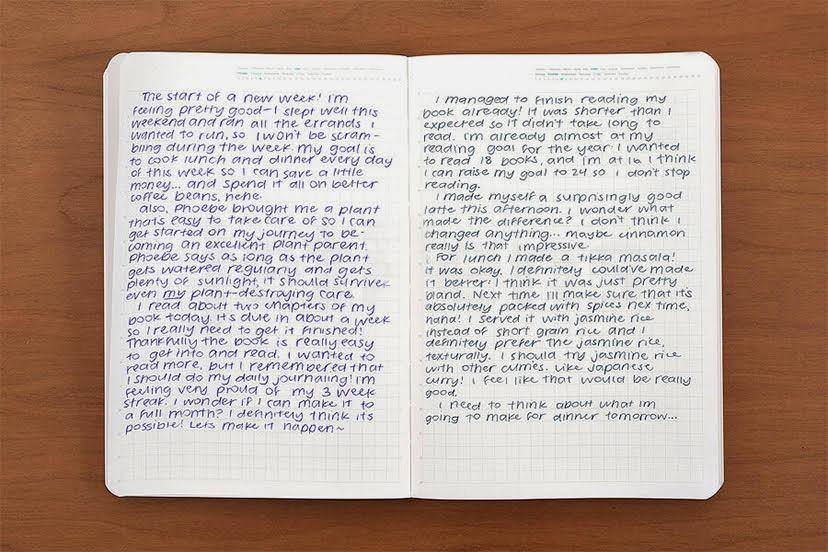 The start of a new week! I'm
feeling pretty good—I slept well this
weekend and ran all the errands I
wanted to run, so I won't be scram-
bling during the week. My goal is
to cook lunch and dinner every day
of this week so I can save a little
money... and spend it all on better
coffee beans, hehe.
Also, Phoebe brought me a plant
thats easy to take care of so I can
get started on my journey to be-
coming an excellent plant parent.
Phoebe says as long as the plant
gets watered regularly and gets
plenty of sunlight, it should survive
even my plant-destroying care.
I read about two chapters of my
book today. Its due in about a week
so I really need to get it finished!
Thankfully the book is really easy
to get into and read. I wanted to
read more, but I remembered that
I should do my daily journaling! I'm
feeling very proud of my 3 week
streak. I wonder if I can make it to
a full month? I definitely think its
possible! Lets make it happen~
I managed to finish reading my
book already! It was shorter than I
expected so it didn't take long to
read. I'm already almost at my
reading goal for the year. I wanted
to read 18 books, and I'm at 16. I think
I can raise my goal to 24 so I don't stop
reading.
I made myself a surprisingly good
latte this afternoon. I wonder what
made the difference? I don't think I
changed anything... maybe cinnamon
really is that impressive.
For lunch I made a tikka masala!
It was okay. I definitely could've made
it better. I think it was just pretty
bland. Next time I'll make sure that it's
absolutely packed with spices next time,
haha! I served it with jasmine rice
instead of short grain rice and I
definitely prefer the jasmine rice,
texturally. I should try jasmine rice
with other curries. Like Japanese
curry! I feel like that would be really
good.
I need to think about what I'm
going to make for dinner tomorrow...